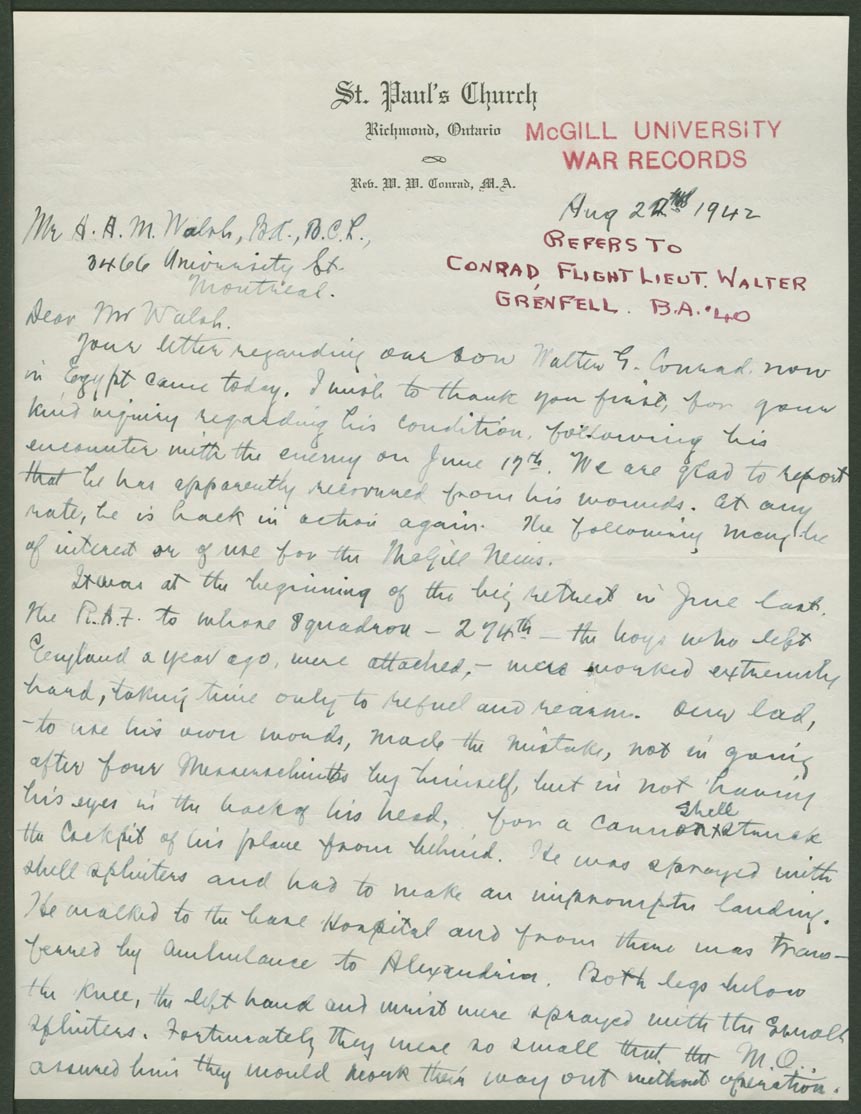 St. Paul's Church
Richmond, Ontario
Rev. W. W. Conrad, M.A.
McGILL UNIVERSITY
WAR RECORDS
Aug 22nd 1942
REFERS TO
CONRAD, FLIGHT LIEUT. WALTER
GRENFELL. B.A. '40
Mr H. A. M. Walsh, B.A., B.C.L.,
3466 University St.
Montreal.
Dear Mr Walsh.
Your letter regarding our son Walter G. Conrad, now
in Egypt came today. I wish to thank you first, for your
kind inquiry regarding his condition, following his
encounter with the enemy on June 17th. We are glad to report
that he has apparently recovered from his wounds. At any
rate, he is back in action again. The following may be
of interest or of use for the McGill News.
It was at the beginning of the big retreat in June last.
The R.A.F. to whose squadron – 274th – the boys who left
England a year ago, were attached, – was worked extremely
hard, taking time only to refuel and rearm. Our lad,
– to use his own words, made the mistake, not in going
after four Messerschmitts by himself, but in not having
his eyes in the back of his head, for a cannon shell struck
the cockpit of his plane from behind. He was sprayed with
shell splinters and had to make an impromptu landing.
He walked to the base Hospital and from there was trans-
ferred by ambulance to Alexandria. Both legs below
the knee, the left hand and wrist were sprayed with the small
splinters. Fortunately they were so small that the M.O.
assured him they would work their way out without operation.